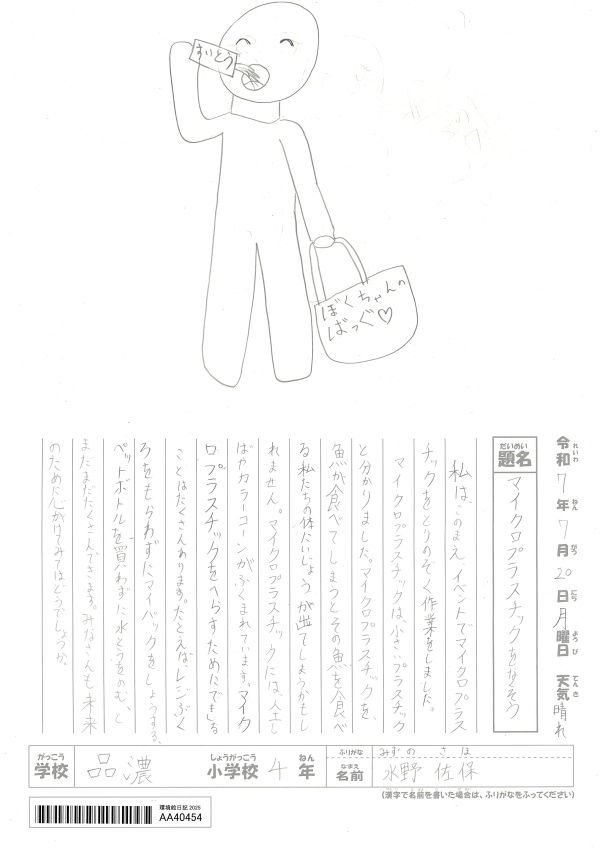 すいとう
ぼくちゃんの
ばっぐ♡
令和7年7月20日月曜日 天気晴れ
れいわ ねん がつ にち ようび てんき
だいめい
題名 マイクロプラスチックをなくそう
私は、このまえ、イベントでマイクロプラス
チックをとりのぞく作業をしました。
マイクロプラスチックは、小さいプラスチック
と分かりました。マイクロプラスチックを、
魚が食べてしまうとその魚を食べ
る私たちの体にいじょうが出てしまうかもし
れません。マイクロプラスチックには、人工し
ばやカラーコーンがふくまれています。マイク
ロプラスチックをへらすためにできる
ことはたくさんあります。たとえば、レジぶく
ろをもらわずにマイバックをしようする、
ペットボトルを買わずに水とうをのむ、と
まだまだたくさんできます。みなさんも未来
のために心がけてみてはどうでしょうか。
がっこう しょうがっこう ねん
学校 品濃 小学校 4年
ふりがな みずの さほ
なまえ
名前 水野 佐保
(漢字で名前を書いた場合は、ふりがなをふってください)
環境絵日記 2025
AA40454